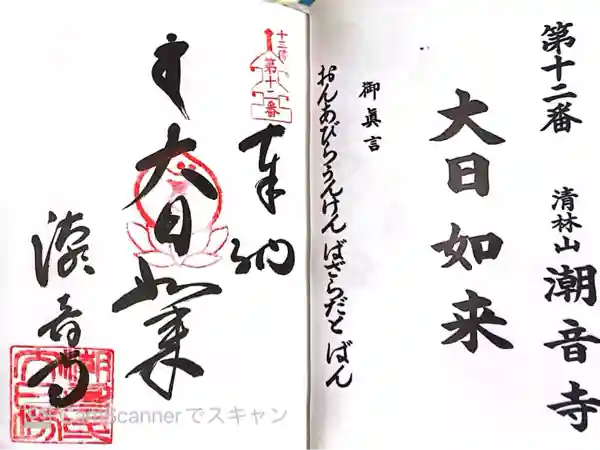 第十二番
清林山 潮音寺
大日如来
御眞言
おんあびらうんけん ばざらだと ばん
十三佛
第十二番
奉納
大日如来
潮音寺
Scannerでスキャン